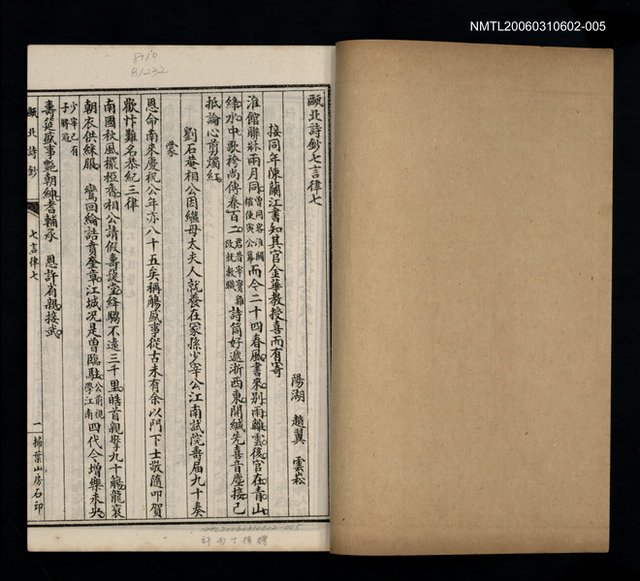 NMTL20060310602-005
甌北詩鈔七言律七
陽湖 趙翼 雲崧
接同年陳蘭江書知其官金華教授喜而有寄
淮館聯牀兩月同曾同客淮關榷使寅公幕而今二十四春風書來別雨離雲後官在青山
綠水中歌袴尚傳秦百二君昔宰寶雞改就教職詩筒好遞浙西東開緘先喜音塵接已
抵論心剪燭紅
劉石菴相公因繼母太夫人就養在冢孫少宰公江南試院壽屆九十奏
蒙
恩命南來慶祝公年亦八十五矣稱觴盛事從古未有余以門下士敬隨叩賀
歡忭難名恭紀三律
南國秋風擢桂香相公請假壽萱堂絳騶不遠三千里皓首親擎九十觴龍袞
朝衣供綵服 鸞回綸誥賁奎章江城況是曾臨駐公前視學江南四代今增樂未央
少宰已有子聯冠
壽筵盛事艷朝紳耆輔承 恩許省親接武
甌北詩鈔
七言律七
一
掃葉山房石印
B1232
NMTL20060310602-005